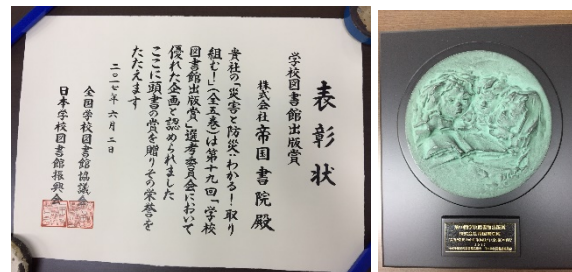 表彰状
学校図書館出版賞
株式会社 帝国書院 殿
貴社の「災害と防災…わかる!取り
組む!」(全五巻)は第十九回「学校
図書館出版賞」選考委員会において
優れた企画と認められました
ここに頭書の賞を贈りその栄誉を
たたえます
二〇一七年 六月 二日
全国学校図書館協議会
日本学校図書館振興会